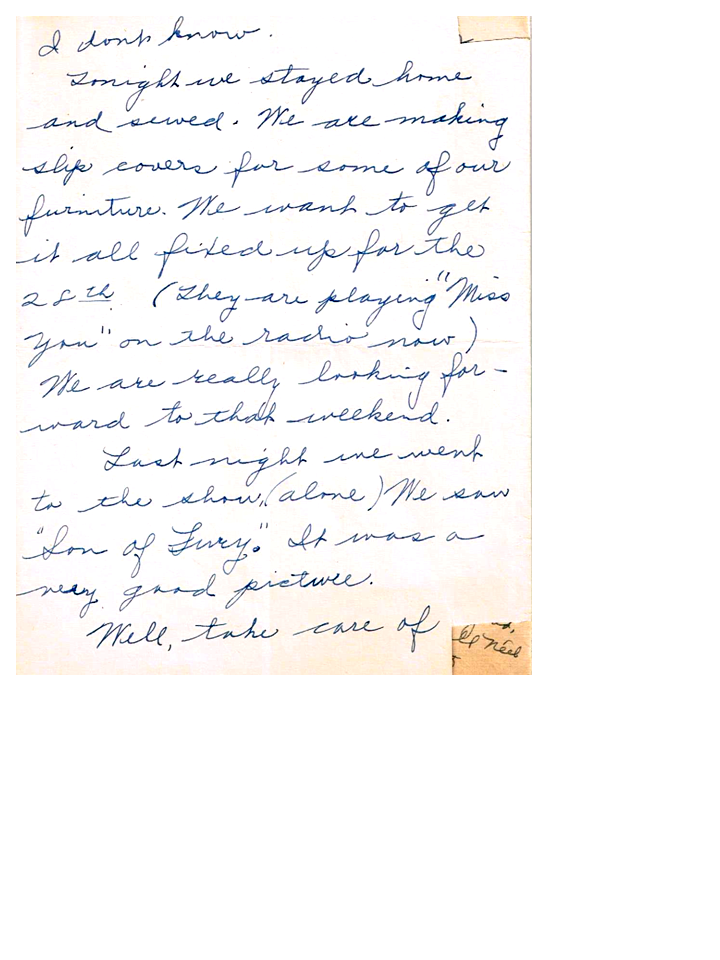 I dont know.
Tonight we stayed home
and sewed. We are making
slip covers for some of our
furniture. We want to get
it all fixed up for the
28th. (They are playing "Miss
You" on the radio now)
We are really looking for-
ward to that weekend.
Last night we went
to the show, (alone) We saw
"Son of Fury". It was a
very good picture.
Well, take care of